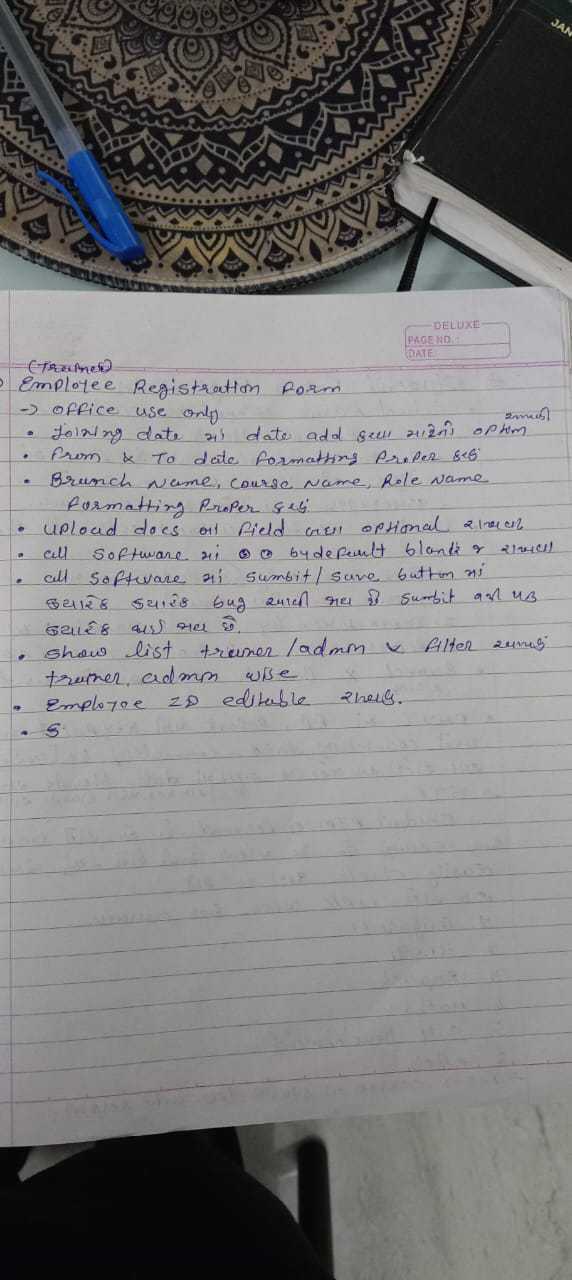 JAN
DELUXE
PAGE NO. :
DATE:
(Trainer)
Employee Registration Form
-> office use only
• Joining date માં date add કરવા માટેની option આપવી
• From & To date formatting Proper કરવું
• Branch Name, Course Name, Role Name
formatting Proper કરવું
• Upload docs ના field બધા optional રાખવા
• all software માં 0 0 by default blank જ રાખવા
• all software માં sumbit/save button માં
ક્યારેક ક્યારેક bug આવી જાય છે sumbit નથી પણ
ક્યારેક થઈ જાય છે.
• Show list trainer/admin & filter આપવું
trainer, admin wise
• Employee ID editable રાખવું.
• ક